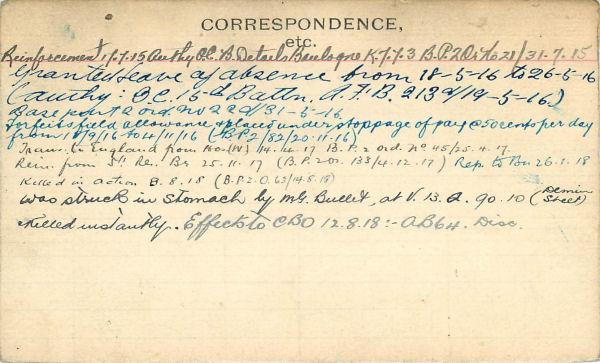 CORRESPONDENCE,
etc.
Reinforcement 17.7.15 Authy O.C. B. Details Boulogne K.7.7.3 B.P.2Ds to 21/31-7.15
Granted leave of absence from 18-5-16 to 26-5-16
(authy: O.C. 15th Battn. A.F.B. 213 d/19-5-16.)
Base part 2 ord no 22 d/31-5-16
Forfeits field allowance & placed under stoppage of pay @ 50 cents per day
from 18/9/16 to 4/11/16 (B.P.2/82/20.12.16)
Trans. to England from 14.4.17 B.P.2 ord. No 45/25.4.17.
Rein. from Re. Bn 25.11.17 (B.P.2 Or. 133/4.12.17) Rep. to Bn 26.1.18
Killed in action 8.8.18 (B.P.2.O.63/14.8.18)
Was struck in Stomach by M.G. Bullet, at V. 13. a. 90.10 (Demuin Sheet)
Killed instantly. Effects to CBO 12.8.18:- AB64. Disc.